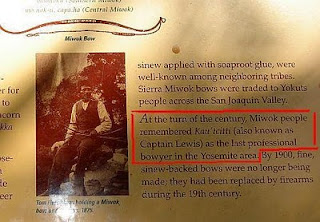 Miwok Bow
sinew applied with soaproot glue, were
well-known among neighboring tribes.
Sierra Miwok bows were traded to Yokuts
people across the San Joaquin Valley.
At the turn of the century, Miwok people
remembered
(also known as
Captain Lewis) as the last professional
bowyer in the Yosemite area. By 1900, fine,
sinew-backed bows were no longer being
made; they had been replaced by firearms
during the 19th century.
holding a Miwok